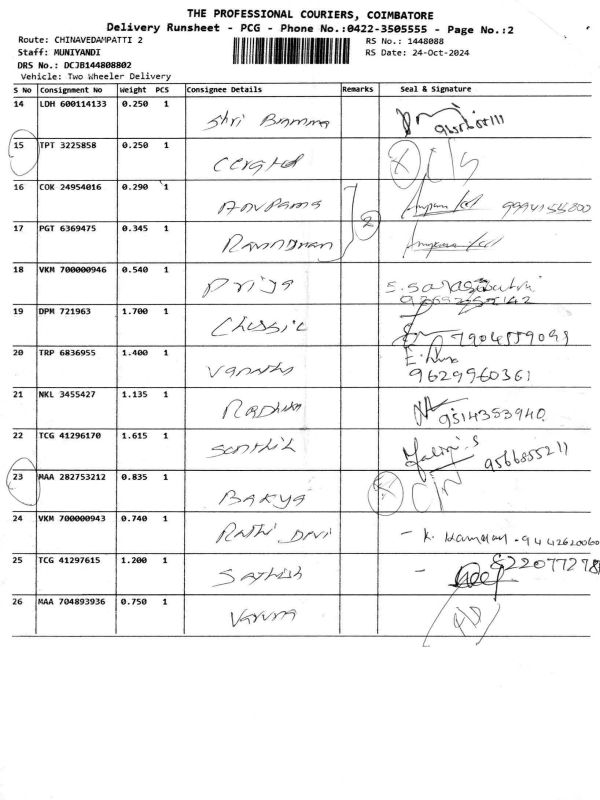 THE PROFESSIONAL COURIERS, COIMBATORE
Delivery Runsheet - PCG - Phone No.:0422-3505555 - Page No.:2
Route: CHINAVEDAMPATTI 2 RS No.: 1448088
Staff: MUNIYANDI RS Date: 24-Oct-2024
DRS No.: DCJB144808802
Vehicle: Two Wheeler Delivery
S No Consignment No Weight PCS Consignee Details Remarks Seal & Signature
14 LDH 600114133 0.250 1 Shri Bramma
15 TPT 3225858 0.250 1
16 COK 24954016 0.290 1 Anupama
17 PGT 6369475 0.345 1 2
18 VKM 700000946 0.540 1 Priya
19 DPM 721963 1.700 1 Classic 7904559099
20 TRP 6836955 1.400 1 Vanitha 9629960361
21 NKL 3455427 1.135 1 Radhika 9514353940
22 TCG 41296170 1.615 1 Senthil Malini.S 9566855211
23 MAA 282753212 0.835 1 Bakya
24 VKM 700000943 0.740 1 Rathi Devi - K. 9442620060
25 TCG 41297615 1.200 1 Sathish -
26 MAA 704893936 0.750 1 Varuna